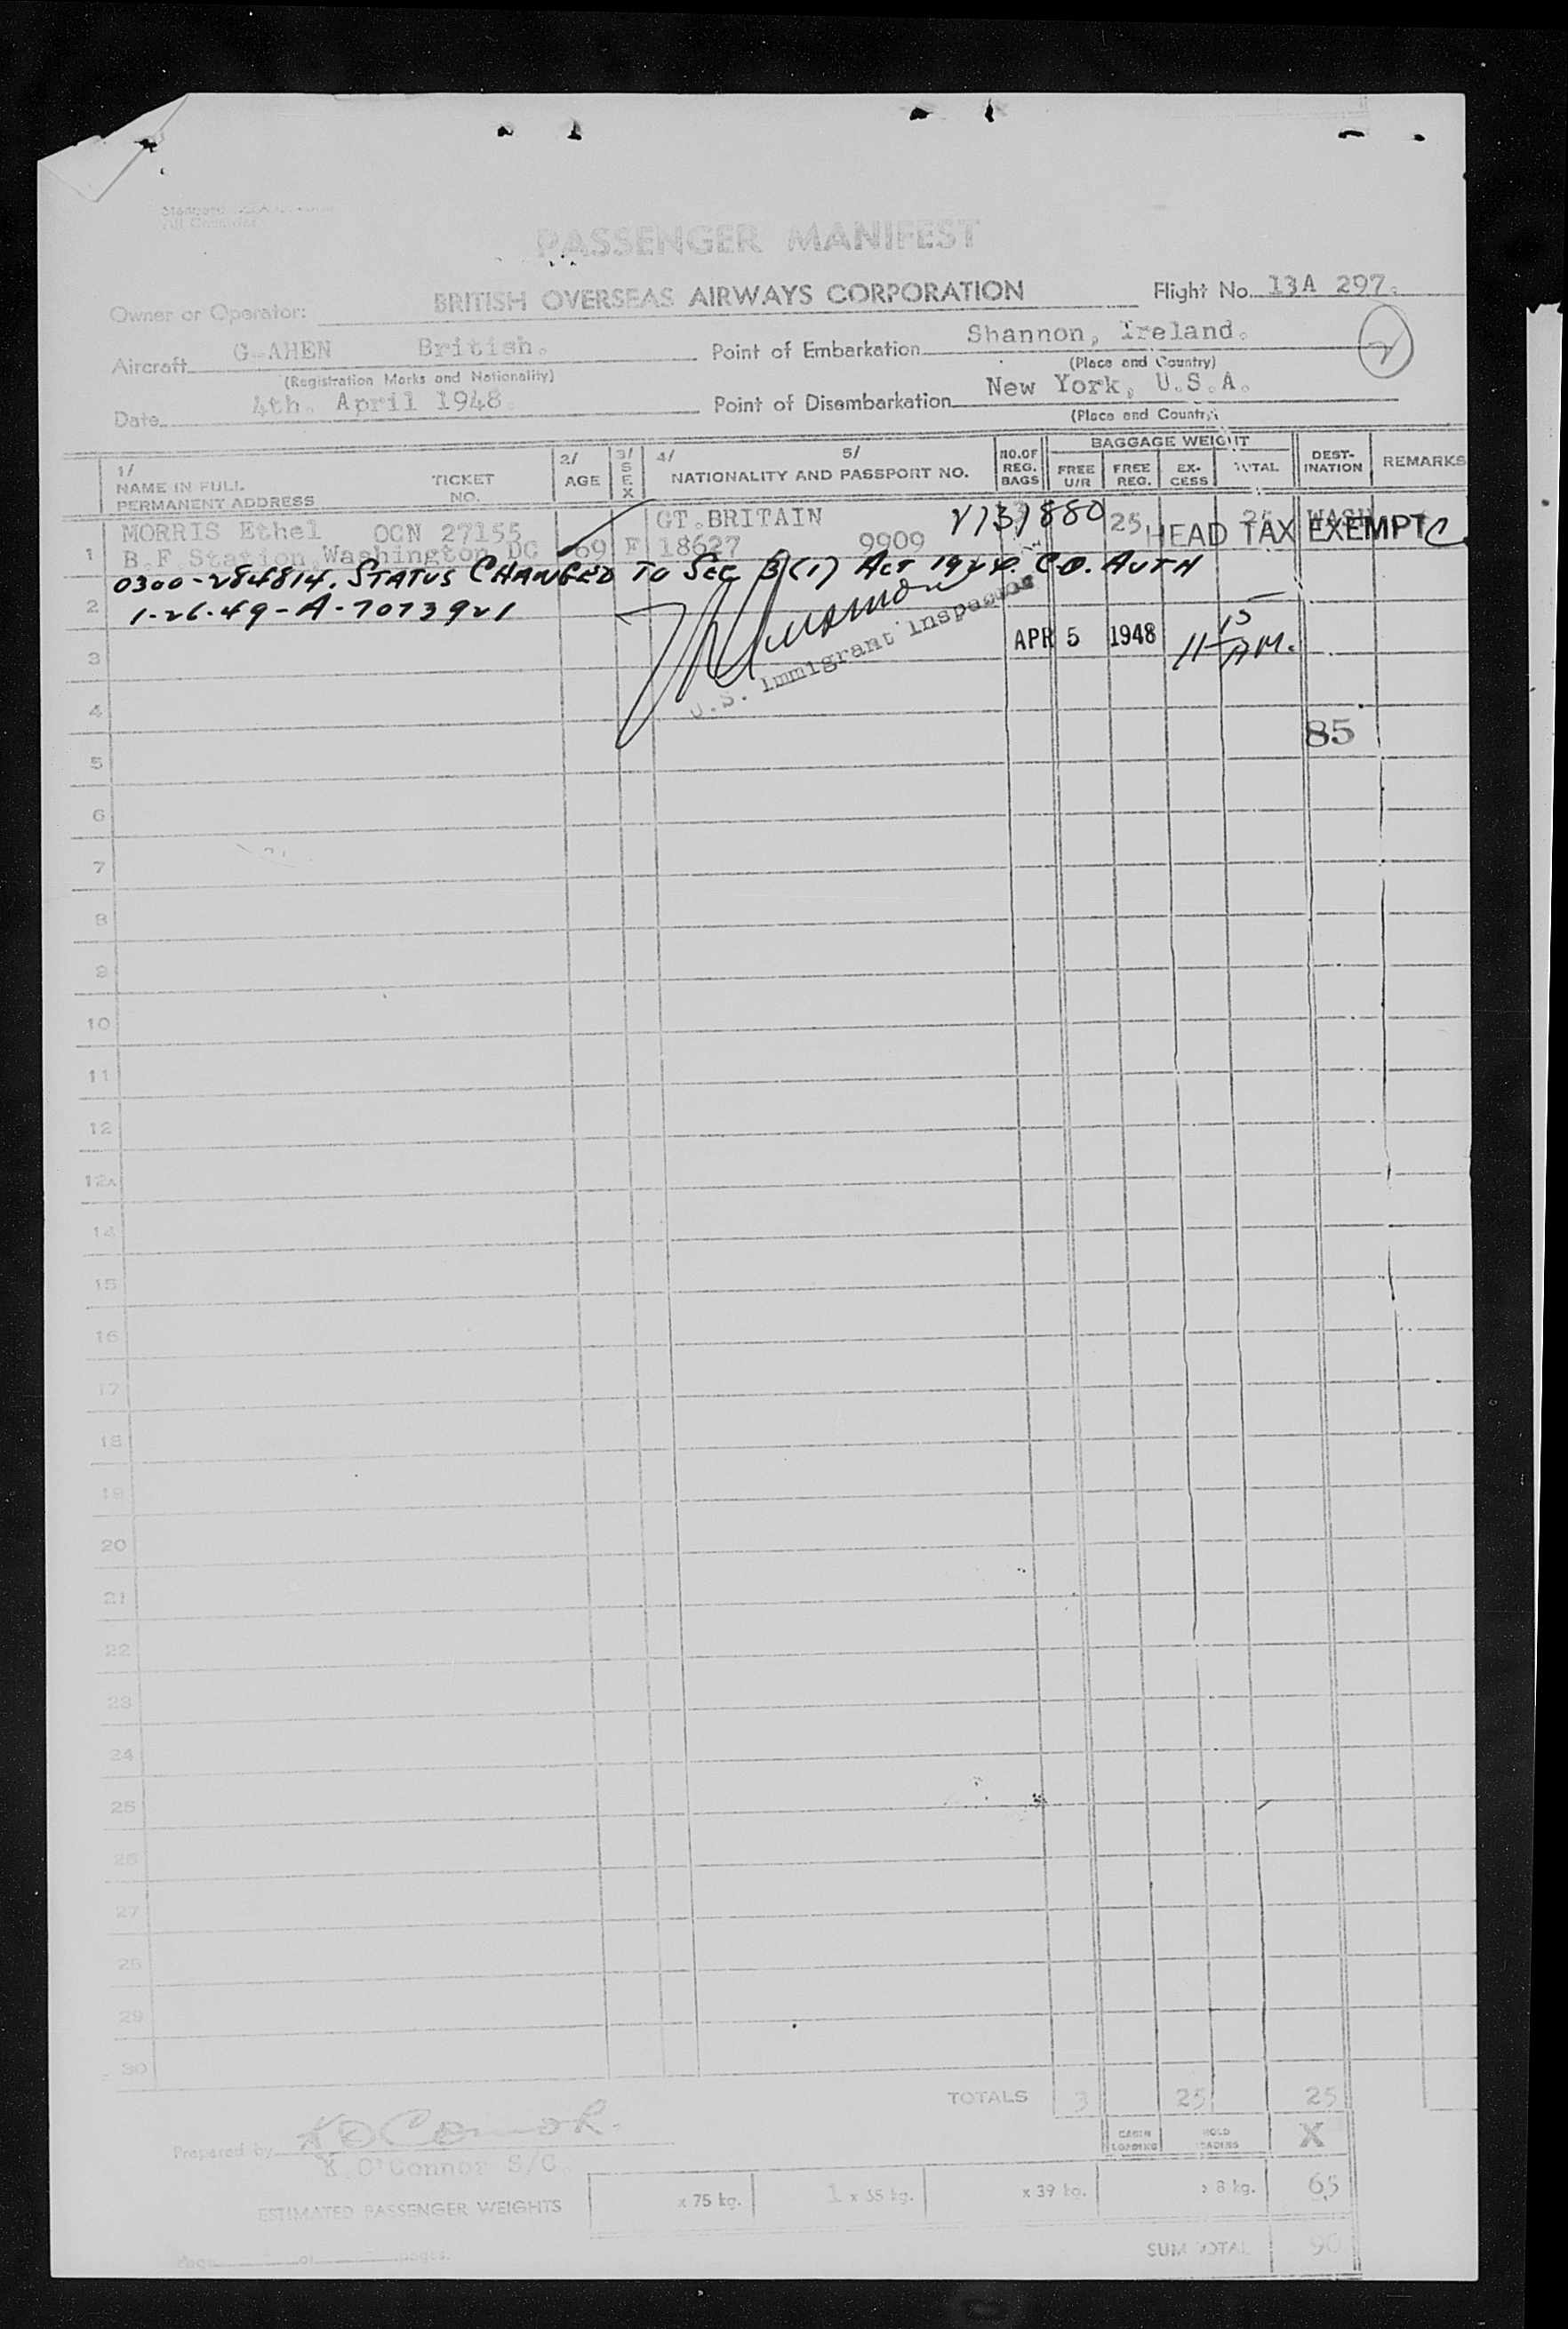 PASSENGER MANIFEST
Owner or Operator: BRITISH OVERSEAS AIRWAYS CORPORATION Flight No. 13A 297.
Aircraft G-AHEN British. Point of Embarkation Shannon, Ireland. 2
(Registration Marks and Nationality) (Place and Country)
Date 4th. April 1948 Point of Disembarkation New York, U.S.A.
(Place and Country)
1/ NAME IN FULL PERMANENT ADDRESS TICKET NO. 2/ AGE 3/ SEX 4/ 5/ NATIONALITY AND PASSPORT NO. NO.OF REG. BAGS BAGGAGE WEIGHT FREE U/R FREE REG. EXCESS TOTAL DESTINATION REMARKS
MORRIS Ethel OCN 27155 GT.BRITAIN V131880 25 25 WASH
1 B.F.Station,Washington DC 69 F 18627 9909 HEAD TAX EXEMPT
0300-284814. STATUS CHANGED TO SEC 3(1) ACT 1924. C.O. AUTH
2 1-26-49-A-7073921
U.S. Immigrant Inspector
3 APR 5 1948 11 15 AM.
4
85
5
6
7
8
9
10
11
12
12A
14
15
16
17
18
19
20
21
22
23
24
25
26
27
28
29
30
TOTALS 3 25 25
CABIN LOADING HOLD LOADING X
Prepared by K O'Connor
K.O'Connor S/C
ESTIMATED PASSENGER WEIGHTS x 75 kg. 1 x 65 kg. x 39 kg. x 8 kg. 65
Page of pages. SUM TOTAL 90